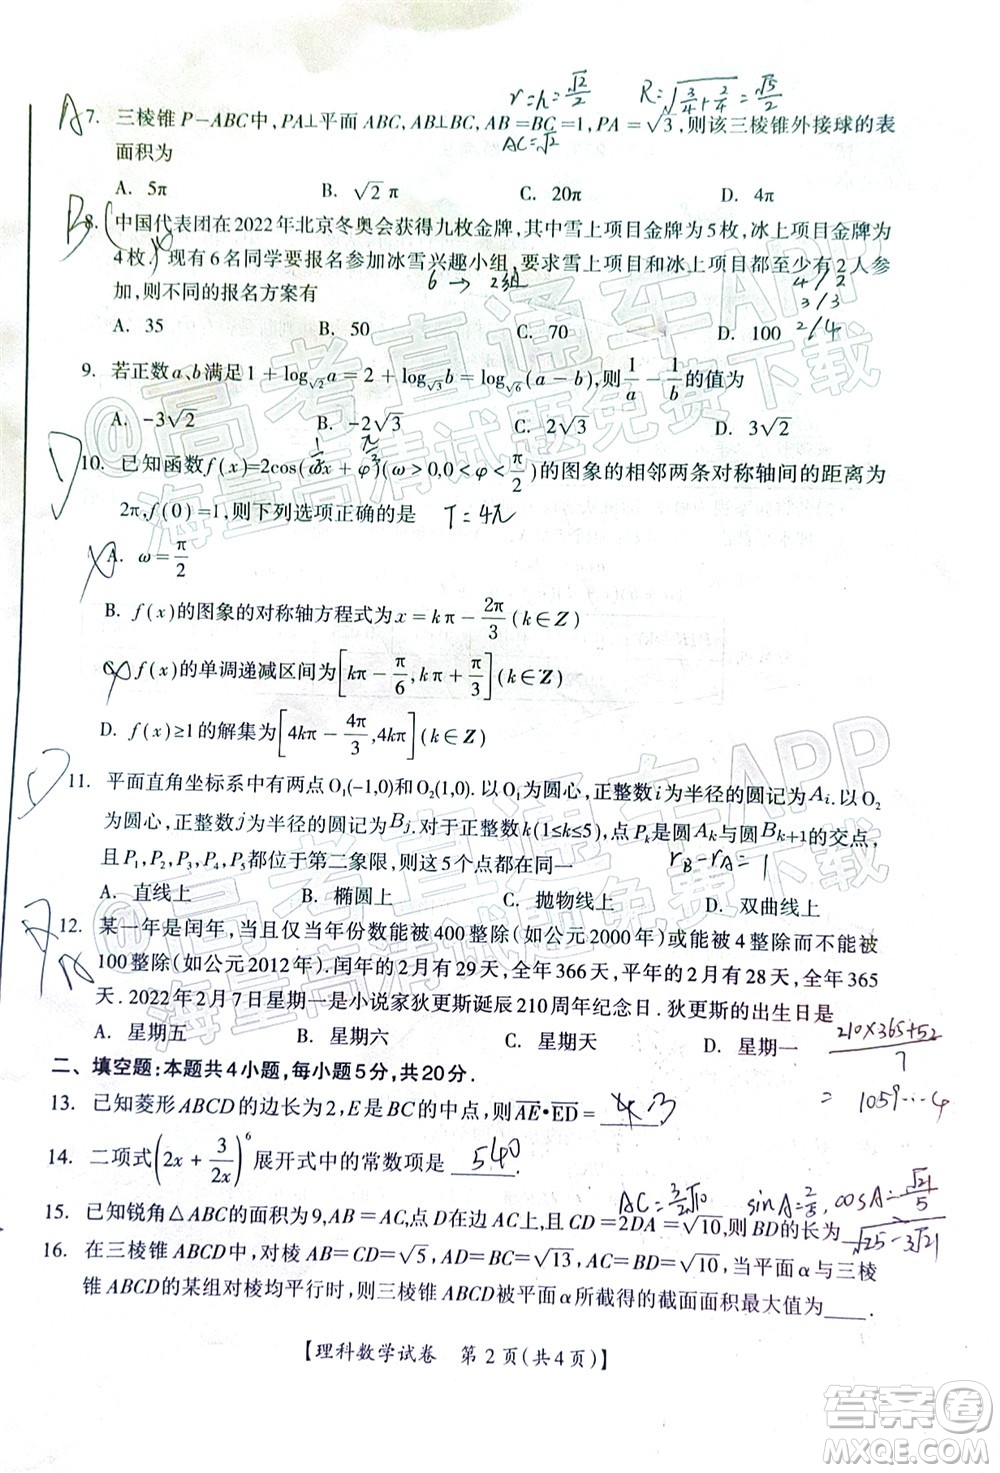 r=h=√2/2 R=√(3/4+2/4)=√5/2
A 7. 三棱锥P-ABC中,PA⊥平面ABC,AB⊥BC,AB=BC=1,PA=√3,则该三棱锥外接球的表
AC=√2
面积为
A. 5π B. √2 π C. 20π D. 4π
B 8. 中国代表团在2022年北京冬奥会获得九枚金牌,其中雪上项目金牌为5枚,冰上项目金牌为
4枚.现有6名同学要报名参加冰雪兴趣小组,要求雪上项目和冰上项目都至少有2人参
6→2组 4/2
加,则不同的报名方案有 3/3
A. 35 B. 50 C. 70 D. 100 2/4
9. 若正数a、b满足1+log√2 a=2+log√3 b=log√6(a-b),则1/a-1/b的值为
A. -3√2 B. -2√3 C. 2√3 D. 3√2
D 10. 已知函数f(x)=2cos(ωx+φ)(ω>0,0<φ<π/2)的图象的相邻两条对称轴间的距离为
2π,f(0)=1,则下列选项正确的是 T=4π
A. ω=π/2
B. f(x)的图象的对称轴方程式为x=kπ-2π/3(k∈Z)
C. f(x)的单调递减区间为[kπ-π/6,kπ+π/3](k∈Z)
D. f(x)≥1的解集为[4kπ-4π/3,4kπ](k∈Z)
D 11. 平面直角坐标系中有两点O₁(-1,0)和O₂(1,0).以O₁为圆心,正整数i为半径的圆记为Aᵢ.以O₂
为圆心,正整数j为半径的圆记为Bⱼ.对于正整数k(1≤k≤5),点Pₖ是圆Aₖ与圆Bₖ₊₁的交点,
且P₁,P₂,P₃,P₄,P₅都位于第二象限,则这5个点都在同一 r_B-r_A=1
A. 直线上 B. 椭圆上 C. 抛物线上 D. 双曲线上
A 12. 某一年是闰年,当且仅当年份数能被400整除(如公元2000年)或能被4整除而不能被
100整除(如公元2012年).闰年的2月有29天,全年366天,平年的2月有28天,全年365
天.2022年2月7日星期一是小说家狄更斯诞辰210周年纪念日.狄更斯的出生日是
A. 星期五 B. 星期六 C. 星期日 D. 星期一 (210×365+52)/7
二、填空题:本题共4小题,每小题5分,共20分.
13. 已知菱形ABCD的边长为2,E是BC的中点,则AE•ED= 3 = 1059…4
14. 二项式(2x+3/2x)⁶展开式中的常数项是 540 .
AC=3/2√10 sinA=2/5, cosA=√21/5
15. 已知锐角△ABC的面积为9,AB=AC,点D在边AC上,且CD=2DA=√10,则BD的长为 √(25-3√21)
16. 在三棱锥ABCD中,对棱AB=CD=√5,AD=BC=√13,AC=BD=√10,当平面α与三棱
锥ABCD的某组对棱均平行时,则三棱锥ABCD被平面α所截得的截面面积最大值为____.
【理科数学试卷 第2页(共4页)】
@高考直通车APP
海量高清试题免费下载
@高考直通车APP
海量高清试题免费下载
答案圈
MXQE.COM